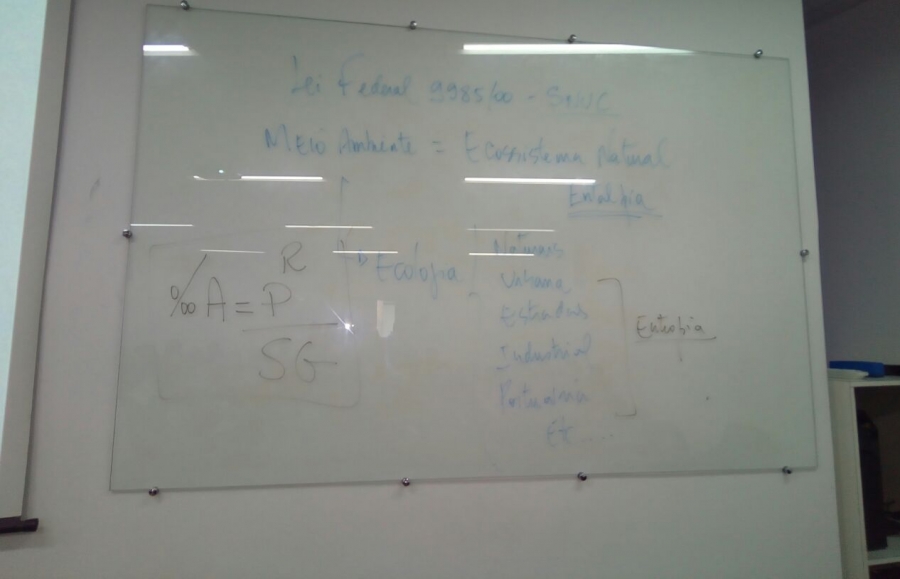 Lei Federal 9985/00 - SNUC
Meio Ambiente = Ecossistema Natural
Entalpia
Ecologia
Naturais
Urbana
Estradas
Industrial
Portuária
Etc ....
Entropia
R
‰ A = P
SG